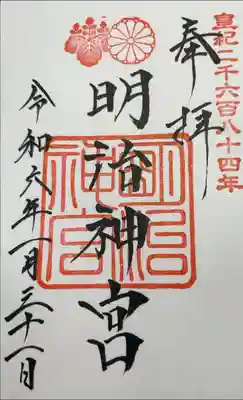 皇紀二千六百八十四年
奉拝
明治神宮
明治神宮
令和六年一月三十一日